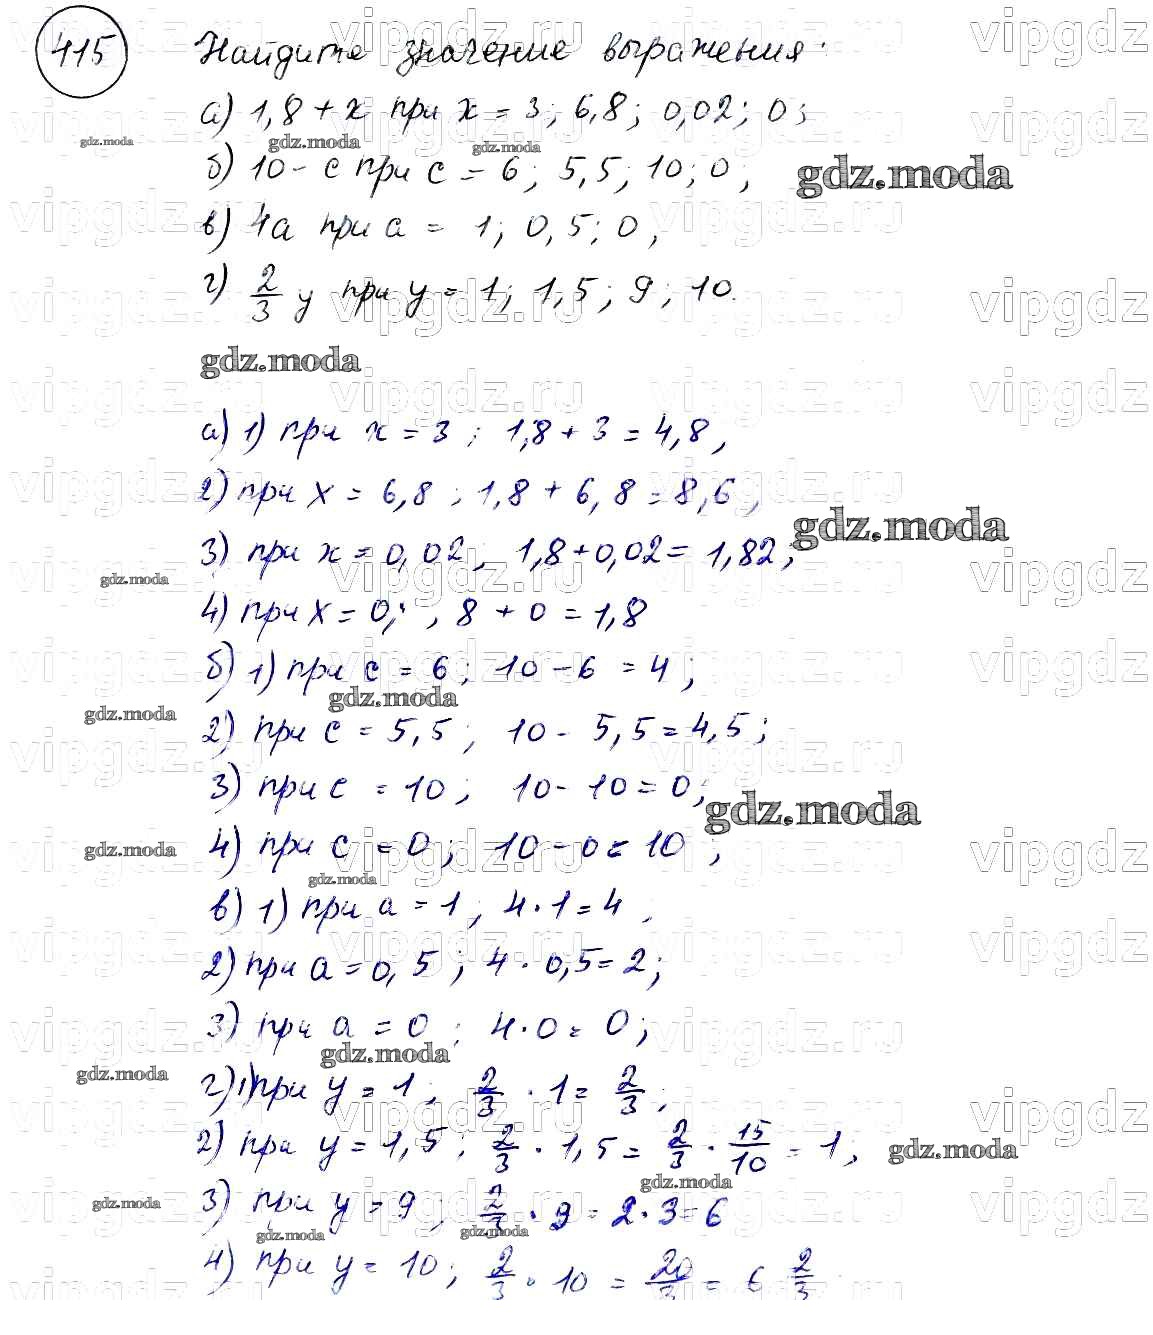 415 Найдите значение выражения:
а) 1,8 + x при x = 3; 6,8; 0,02; 0;
б) 10 - c при c = 6; 5,5; 10; 0;
в) 4a при a = 1; 0,5; 0;
г) 2/3 y при y = 1; 1,5; 9; 10.
а) 1) при x = 3; 1,8 + 3 = 4,8;
2) при x = 6,8; 1,8 + 6,8 = 8,6;
3) при x = 0,02; 1,8 + 0,02 = 1,82;
4) при x = 0; , 8 + 0 = 1,8
б) 1) при c = 6; 10 - 6 = 4;
2) при c = 5,5; 10 - 5,5 = 4,5;
3) при c = 10; 10 - 10 = 0;
4) при c = 0; 10 - 0 = 10;
в) 1) при a = 1; 4 · 1 = 4;
2) при a = 0,5; 4 · 0,5 = 2;
3) при a = 0; 4 · 0 = 0;
г) 1) при y = 1; 2/3 · 1 = 2/3;
2) при y = 1,5; 2/3 · 1,5 = 2/3 · 15/10 = 1;
3) при y = 9; 2/3 · 9 = 2 · 3 = 6
4) при y = 10; 2/3 · 10 = 20/3 = 6 2/3
gdz.moda
vipgdz.ru